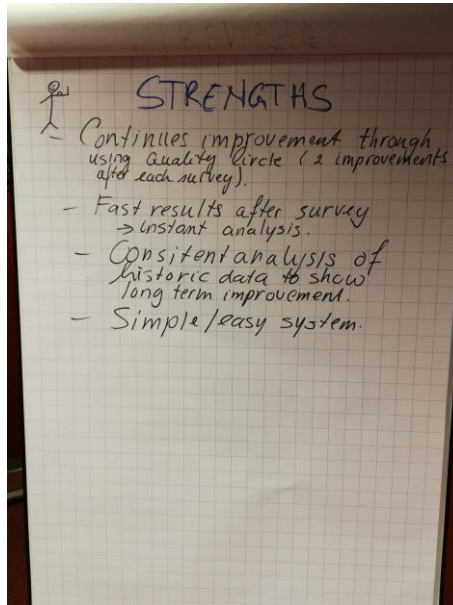 STRENGTHS
- Continues improvement through
using Quality Circle (2 improvements
after each survey).
- Fast results after survey
→ instant analysis.
- Consitent analysis of
historic data to show
long term improvement.
- Simple/easy system.